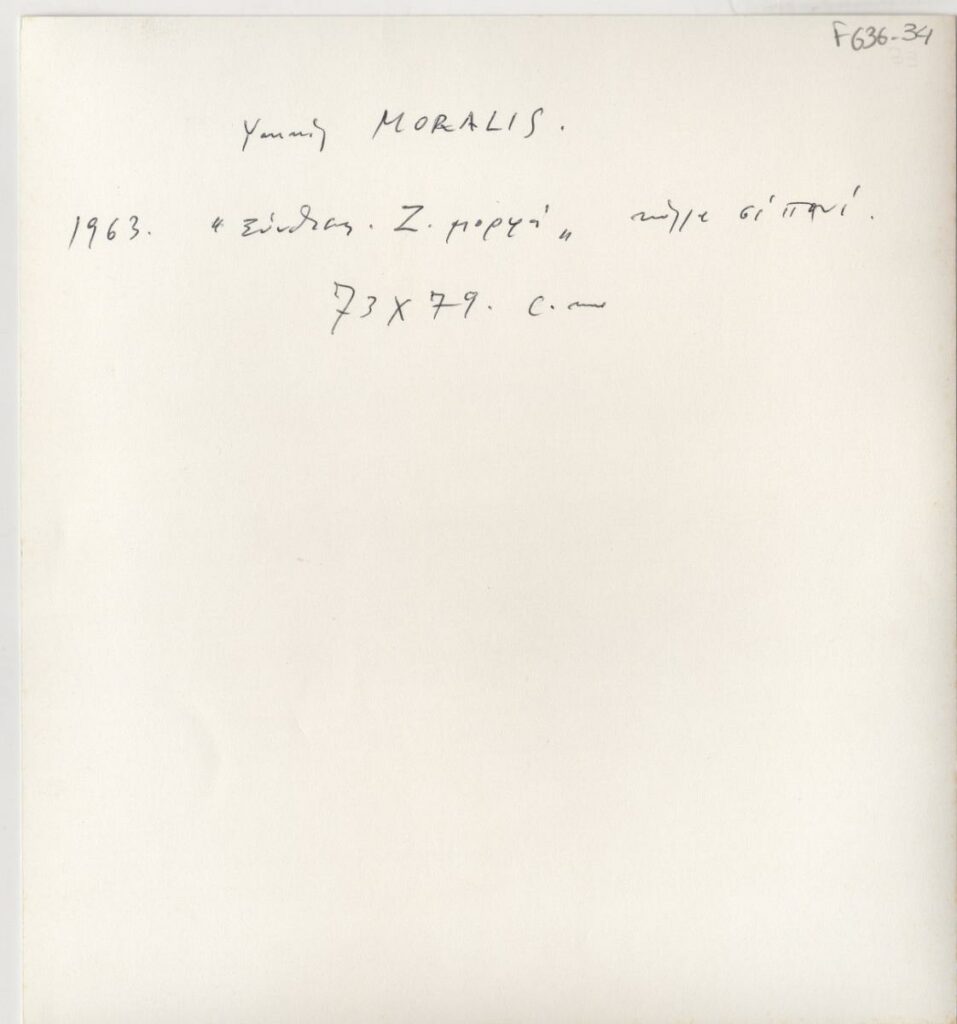 F636-34
Yannis MORALIS.
1963. " Σύνθεση. Ζ. μορφή „ κόλλα σέ πανί.
73 X 79. c.m